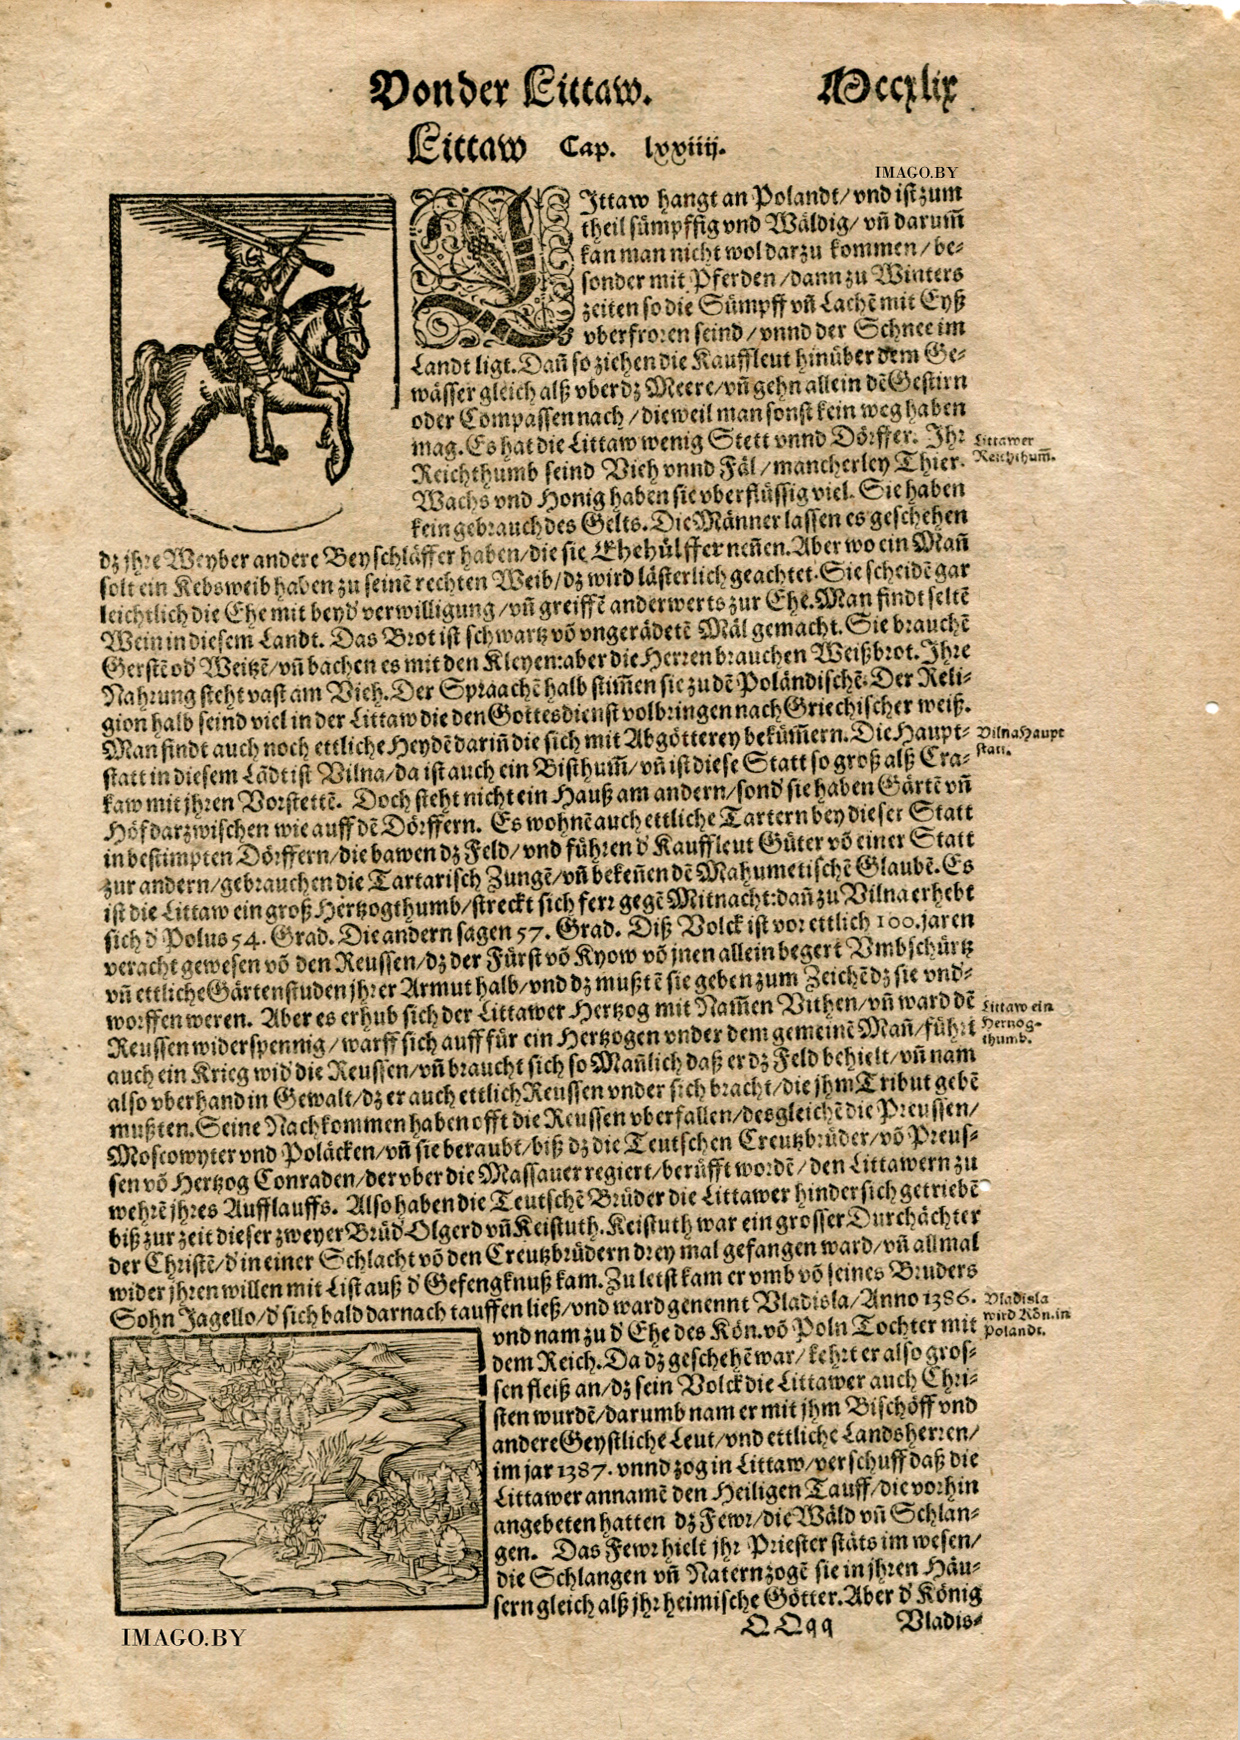 Von der Littaw. Mccxlix
Littaw Cap. lxxiiij.
IMAGO.BY
LIttaw hangt an Polandt/ vnd ist zum
theil sümpffig vnd Wäldig/ vñ darum̃
kan man nicht wol darzu kommen/ be-
sonder mit Pferden/ dann zu Winters
zeiten so die Sümpff vñ Lachẽ mit Eyß
vberfroren seind/ vnnd der Schnee im
Landt ligt. Dañ so ziehen die Kauffleut hinüber dem Ge-
wässer gleich alß vber dz Meere/ vñ gehn allein dẽ Gestirn
oder Compassen nach/ dieweil man sonst kein weg haben
mag. Es hat die Littaw wenig Stett vnnd Dörffer. Ihr
Reichthumb seind Vieh vnnd Fäl/ mancherley Thier.
Wachs vnd Honig haben sie vberflüssig viel. Sie haben
kein gebrauch des Gelts. Die Männer lassen es geschehen
dz jhre Weyber andere Beyschläffer haben/ die sie Ehehülffer neñen. Aber wo ein Mañ
solt ein Kebsweib haben zu seinẽ rechten Weib/ dz wird lästerlich geachtet. Sie scheidẽ gar
leichtlich die Ehe mit beyd' verwilligung/ vñ greiffẽ anderwerts zur Ehe. Man findt seltẽ
Wein in diesem Landt. Das Brot ist schwartz võ vngerädetẽ Mäl gemacht. Sie brauchẽ
Gerstẽ od' Weitzẽ/ vñ bachen es mit den Kleyen: aber die Herren brauchen Weißbrot. Ihre
Nahrung steht vast am Vieh. Der Spraachẽ halb stim̃en sie zu dẽ Poländischẽ. Der Reli-
gion halb seind viel in der Littaw die den Gottesdienst volbringen nach Griechischer weiß.
Man findt auch noch ettliche Heydẽ dariñ die sich mit Abgötterey beküm̃ern. Die Haupt-
statt in diesem Lãdt ist Vilna/ da ist auch ein Bisthum̃/ vñ ist diese Statt so groß alß Cra-
kaw mit jhren Vorstettẽ. Doch steht nicht ein Hauß am andern/ sond' sie haben Gärtẽ vñ
Höf darzwischen wie auff dẽ Dörffern. Es wohnẽ auch ettliche Tartern bey dieser Statt
in bestimpten Dörffern/ die bawen dz Feld/ vnd führen d' Kauffleut Güter võ einer Statt
zur andern/ gebrauchen die Tartarisch Zungẽ/ vñ bekeñen dẽ Mahumetischẽ Glaubẽ. Es
ist die Littaw ein groß Hertzogthumb/ streckt sich ferr gegẽ Mitnacht: dañ zu Vilna erhebt
sich d' Polus 54. Grad. Die andern sagen 57. Grad. Diß Volck ist vor ettlich 100. jaren
veracht gewesen võ den Reussen/ dz der Fürst võ Kyow võ jnen allein begert Vmbschürtz
vñ ettliche Gärtenstuden jhrer Armut halb/ vnd dz mußtẽ sie geben zum Zeichẽ dz sie vnd'-
worffen weren. Aber es erhub sich der Littawer Hertzog mit Nam̃en Vithen/ vñ ward dẽ
Reussen widerspennig/ warff sich auff für ein Hertzogen vnder dem gemeinẽ Mañ/ führt
auch ein Krieg wid' die Reussen/ vñ braucht sich so Mañlich daß er dz Feld behielt/ vñ nam
also vberhand in Gewalt/ dz er auch ettlich Reussen vnder sich bracht/ die jhm Tribut gebẽ
mußten. Seine Nachkommen haben offt die Reussen vberfallen/ desgleichẽ die Preussen/
Moscowyter vnd Poläcken/ vñ sie beraubt/ biß dz die Teutschen Creutzbrüder/ võ Preus-
sen võ Hertzog Conraden/ der vber die Massauer regiert/ berüfft wordẽ/ den Littawern zu
wehrẽ jhres Aufflauffs. Also haben die Teutschẽ Brüder die Littawer hinder sich getriebẽ
biß zur zeit dieser zweyer Brüd' Olgerd vñ Keistuth. Keistuth war ein grosser Durchächter
der Christẽ/ d' in einer Schlacht võ den Creutzbrüdern drey mal gefangen ward/ vñ allmal
wider jhren willen mit List auß d' Gefengknuß kam. Zu letst kam er vmb võ seines Bruders
Sohn Jagello/ d' sich bald darnach tauffen ließ/ vnd ward genennt Vladisla/ Anno 1386.
vnd nam zu d' Ehe des Kön. võ Poln Tochter mit
dem Reich. Da dz geschehẽ war/ kehrt er also gros-
sen fleiß an/ dz sein Volck die Littawer auch Chri-
sten wurdẽ/ darumb nam er mit jhm Bischöff vnd
andere Geystliche Leut/ vnd ettliche Landsherren/
im jar 1387. vnnd zog in Littaw/ verschuff daß die
Littawer annamẽ den Heiligen Tauff/ die vorhin
angebeten hatten dz Fewr/ die Wäld vñ Schlan-
gen. Das Fewr hielt jhr Priester stäts im wesen/
die Schlangen vñ Natern zogẽ sie in jhren Häu-
sern gleich alß jhr heimische Götter. Aber d' König
QQqq Vladis-
Littawer
Reichthum̃.
Vilna Haupt
statt.
Littaw ein
Hertzog-
thumb.
Vladisla
wird Kön. in
Polandt.
IMAGO.BY